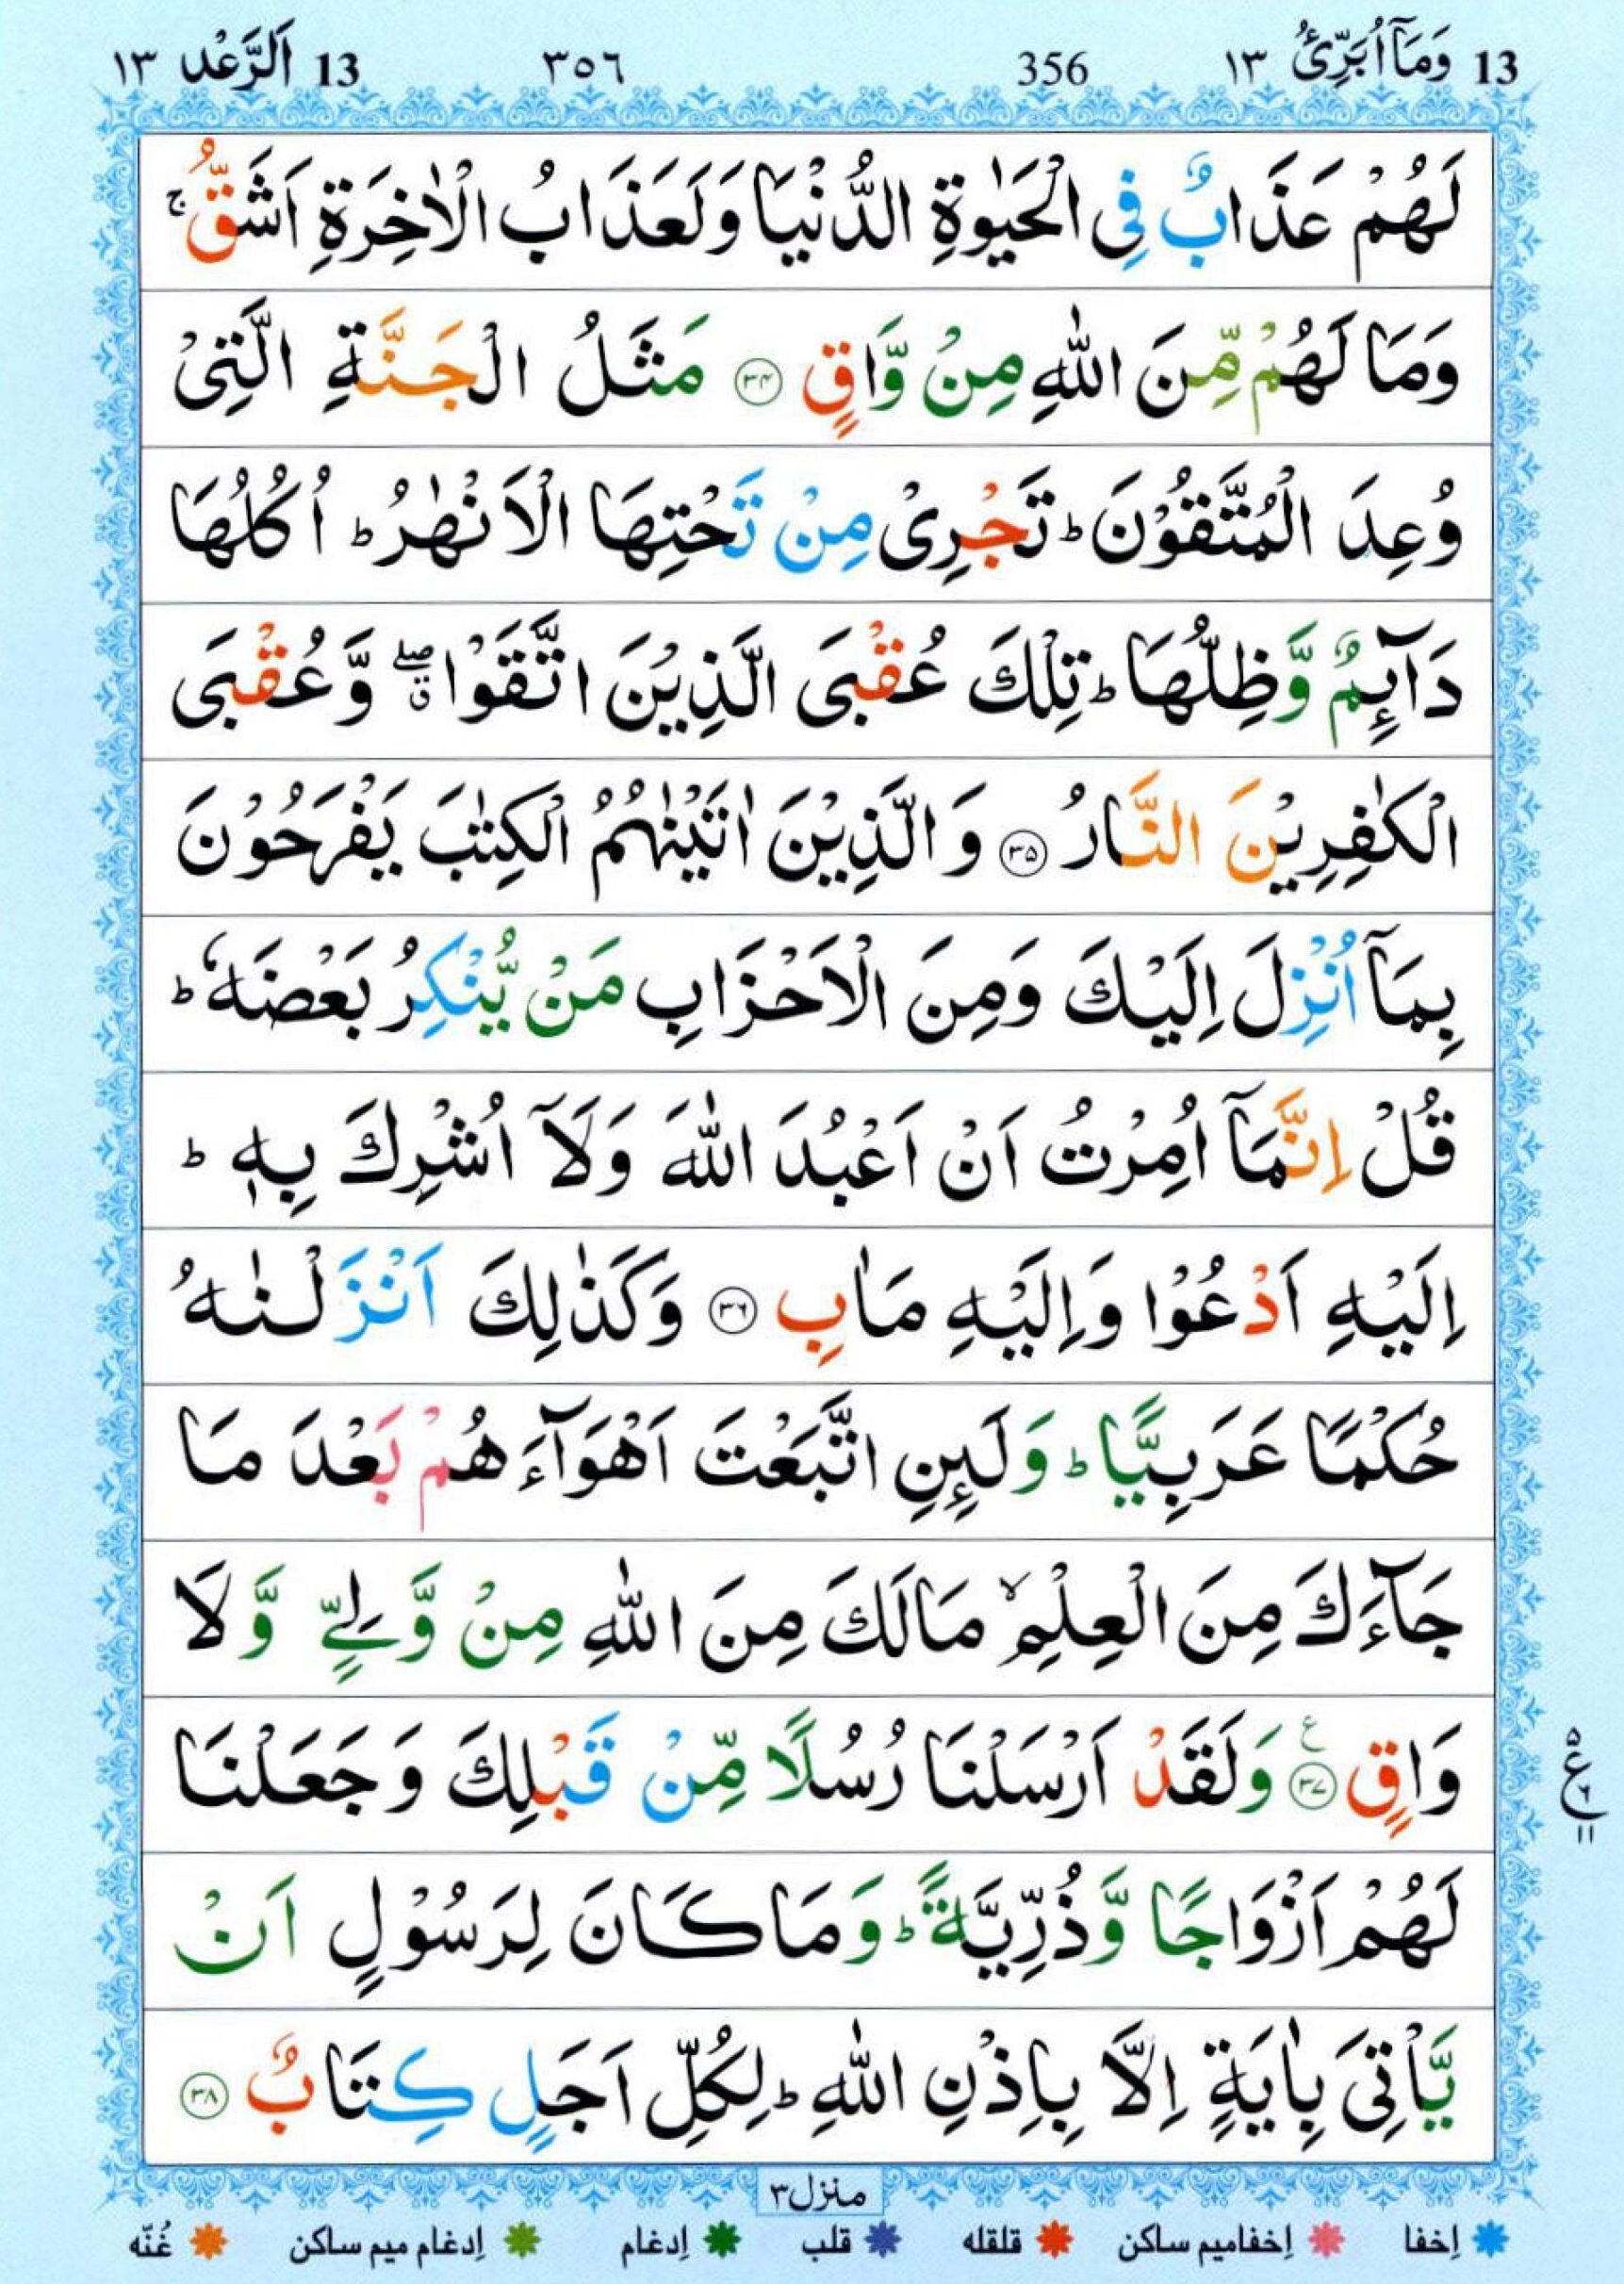 13 وَمَآ اُبَرِّئُ ١٣ 356 ٣٥٦ 13 اَلرَّعْد ١٣
لَهُمْ عَذَابٌ فِى الْحَيٰوةِ الدُّنْيَا وَلَعَذَابُ الْاٰخِرَةِ اَشَقُّ ۚ
وَمَا لَهُمْ مِّنَ اللّٰهِ مِنْ وَّاقٍ ﴿۳۴﴾ مَثَلُ الْجَنَّةِ الَّتِىْ
وُعِدَ الْمُتَّقُوْنَ ؕ تَجْرِىْ مِنْ تَحْتِهَا الْاَنْهٰرُ ؕ اُكُلُهَا
دَآئِمٌ وَّظِلُّهَا ؕ تِلْكَ عُقْبَى الَّذِيْنَ اتَّقَوْا ۖۗ وَّعُقْبَى
الْكٰفِرِيْنَ النَّارُ ﴿۳۵﴾ وَالَّذِيْنَ اٰتَيْنٰهُمُ الْكِتٰبَ يَفْرَحُوْنَ
بِمَآ اُنْزِلَ اِلَيْكَ وَمِنَ الْاَحْزَابِ مَنْ يُّنْكِرُ بَعْضَهٗ ؕ
قُلْ اِنَّمَآ اُمِرْتُ اَنْ اَعْبُدَ اللّٰهَ وَلَآ اُشْرِكَ بِهٖ ؕ
اِلَيْهِ اَدْعُوْا وَاِلَيْهِ مَاٰبِ ﴿۳۶﴾ وَكَذٰلِكَ اَنْزَلْنٰهُ
حُكْمًا عَرَبِيًّا ؕ وَلَئِنِ اتَّبَعْتَ اَهْوَآءَهُمْ بَعْدَ مَا
جَآءَكَ مِنَ الْعِلْمِ ۙ مَا لَكَ مِنَ اللّٰهِ مِنْ وَّلِىٍّ وَّلَا
وَاقٍ ﴿۳۷﴾ ع وَلَقَدْ اَرْسَلْنَا رُسُلًا مِّنْ قَبْلِكَ وَجَعَلْنَا
۵ ع ٦ ١١
لَهُمْ اَزْوَاجًا وَّذُرِّيَّةً ؕ وَمَا كَانَ لِرَسُوْلٍ اَنْ
يَّاْتِىَ بِاٰيَةٍ اِلَّا بِاِذْنِ اللّٰهِ ؕ لِكُلِّ اَجَلٍ كِتَابٌ ﴿۳۸﴾
منزل ٣
إخفا إخفاميم ساكن قلقله قلب إدغام إدغام ميم ساكن غُنّه